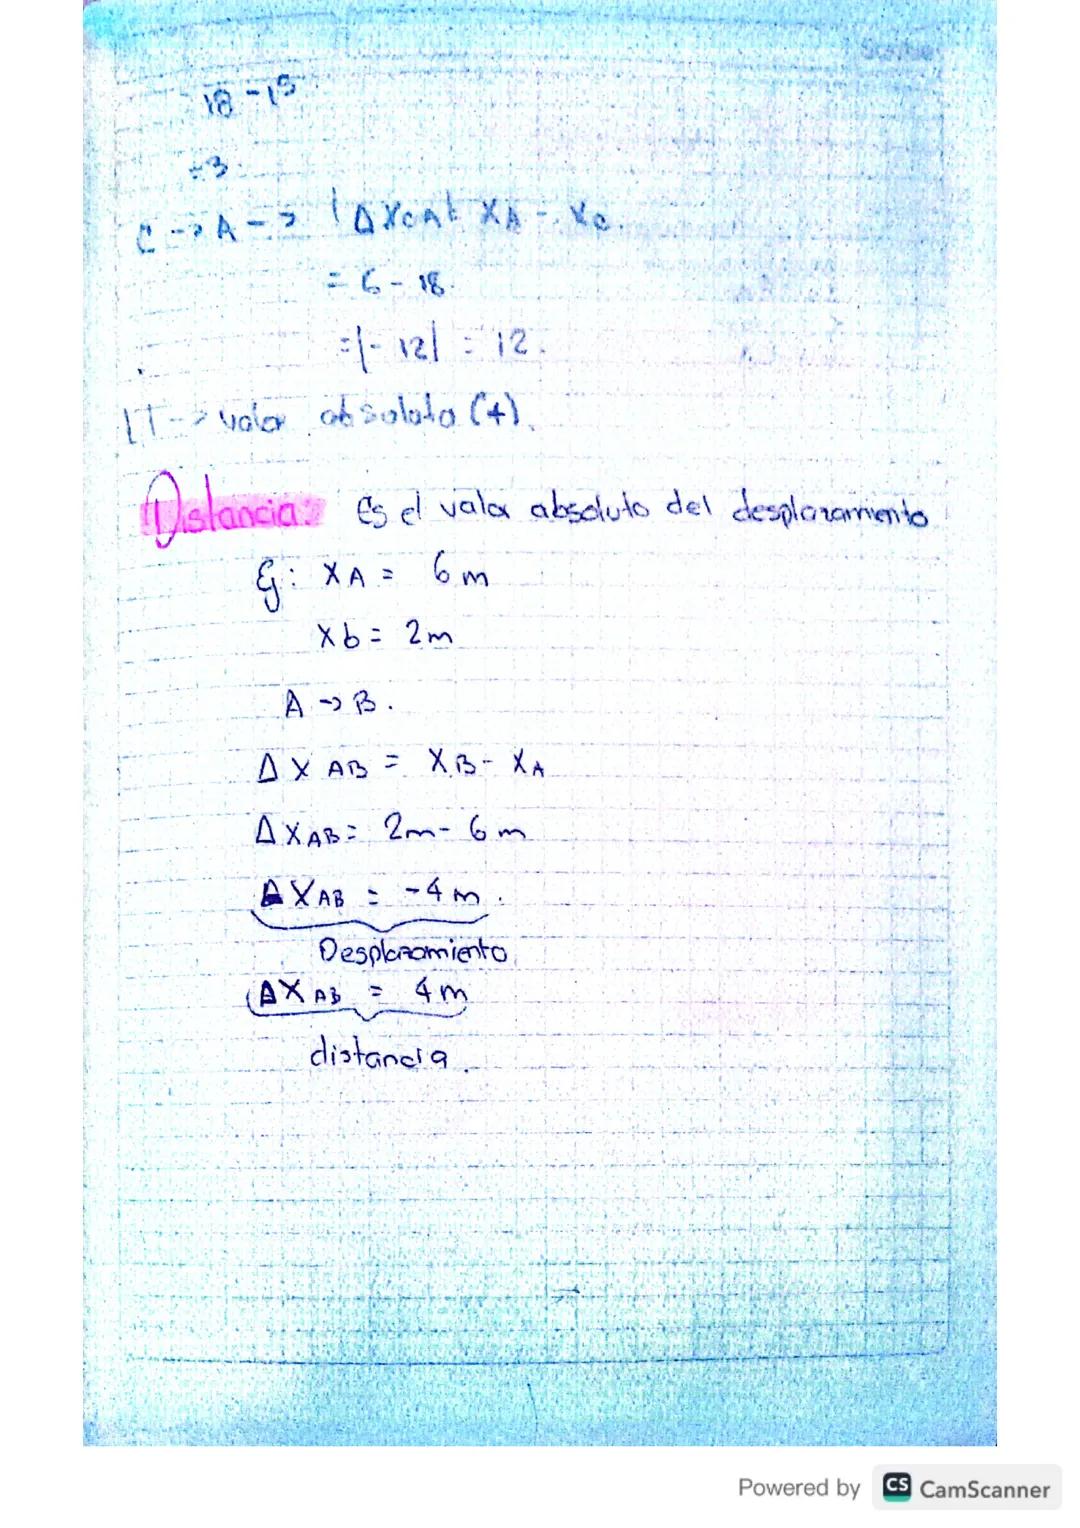 Scribe
18 - 15
= 3
C -> A -> |ΔXCA| XA - XC
= 6 - 18.
= |- 12| = 12.
| | -> valor absoluto (+).
Distancia: Es el valor absoluto del desplazamiento
Ej: XA = 6 m
Xb = 2m
A -> B.
ΔX AB = XB - XA
ΔXAB = 2m - 6 m
ΔXAB = -4 m.
Desplazamiento
ΔX AB = 4 m
distancia.
Powered by CS CamScanner